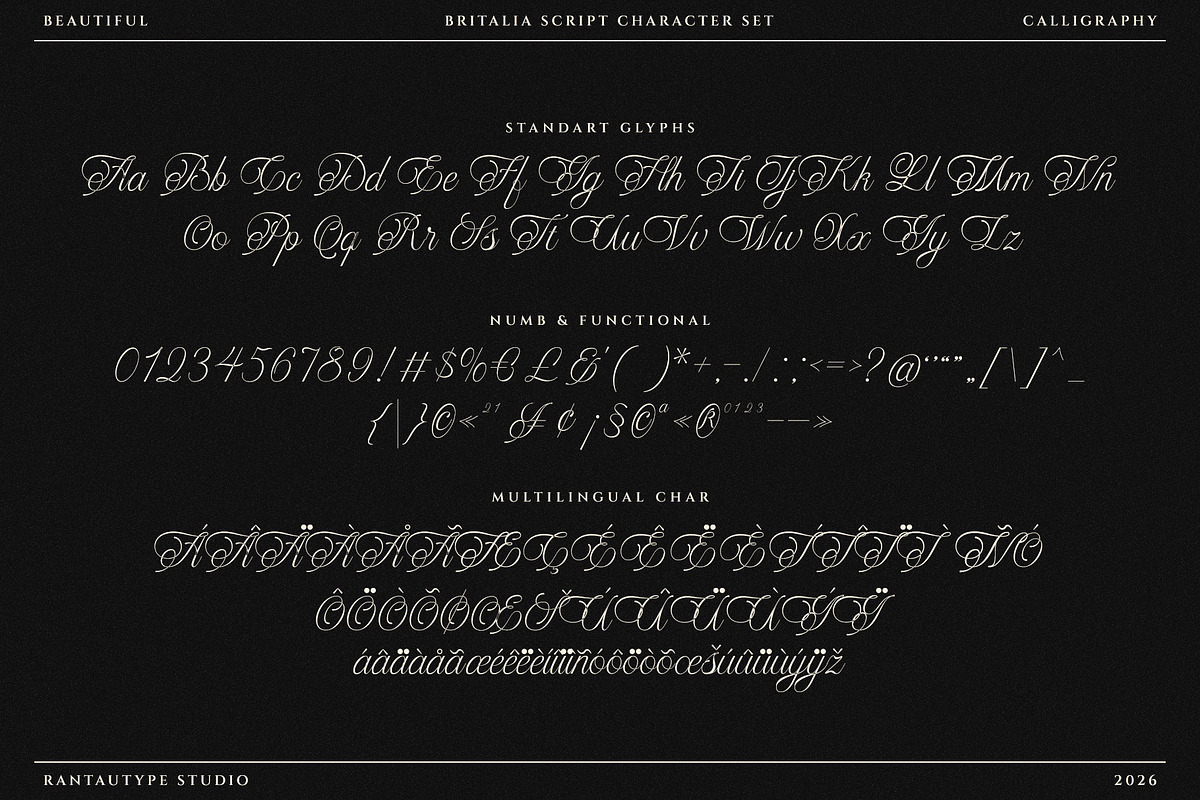 BEAUTIFUL
BRITALIA SCRIPT CHARACTER SET
CALLIGRAPHY
STANDART GLYPHS
Aa Bb Cc Dd Ee Ff Gg Hh Ii Jj Kk Ll Mm Nn
Oo Pp Qq Rr Ss Tt Uu Vv Ww Xx Yy Zz
NUMB & FUNCTIONAL
0123456789!#$%€£&'( )*+,-./:;<=>?@‘’“”„[\]^_
{|}©«²¹ ¥ ¢ ¡§©ª«®⁰¹²³–—»
MULTILINGUAL CHAR
ÁÂÄÀÅÃÆÇÉÊËÈÍÎÏÌÑÓ
ÔÖÒÕØŒŠÚÛÜÙÝŸ
áâäàåãæéêëèíîïìñóôöòõœšúûüùýÿž
RANTAUTYPE STUDIO
2026